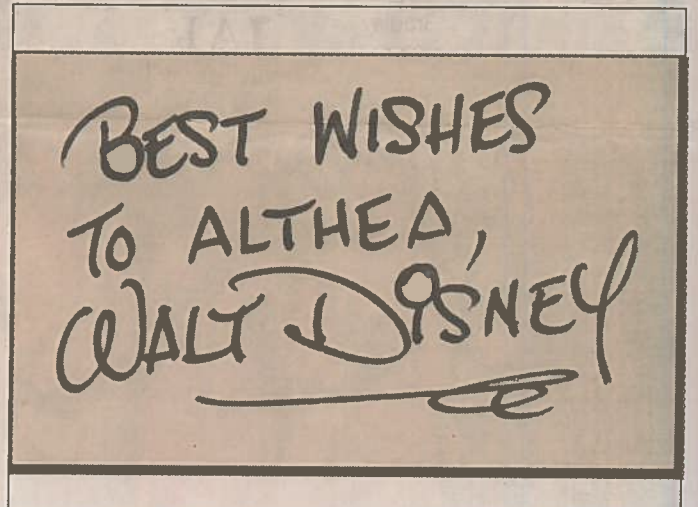 BEST WISHES
TO ALTHEA,
WALT DISNEY